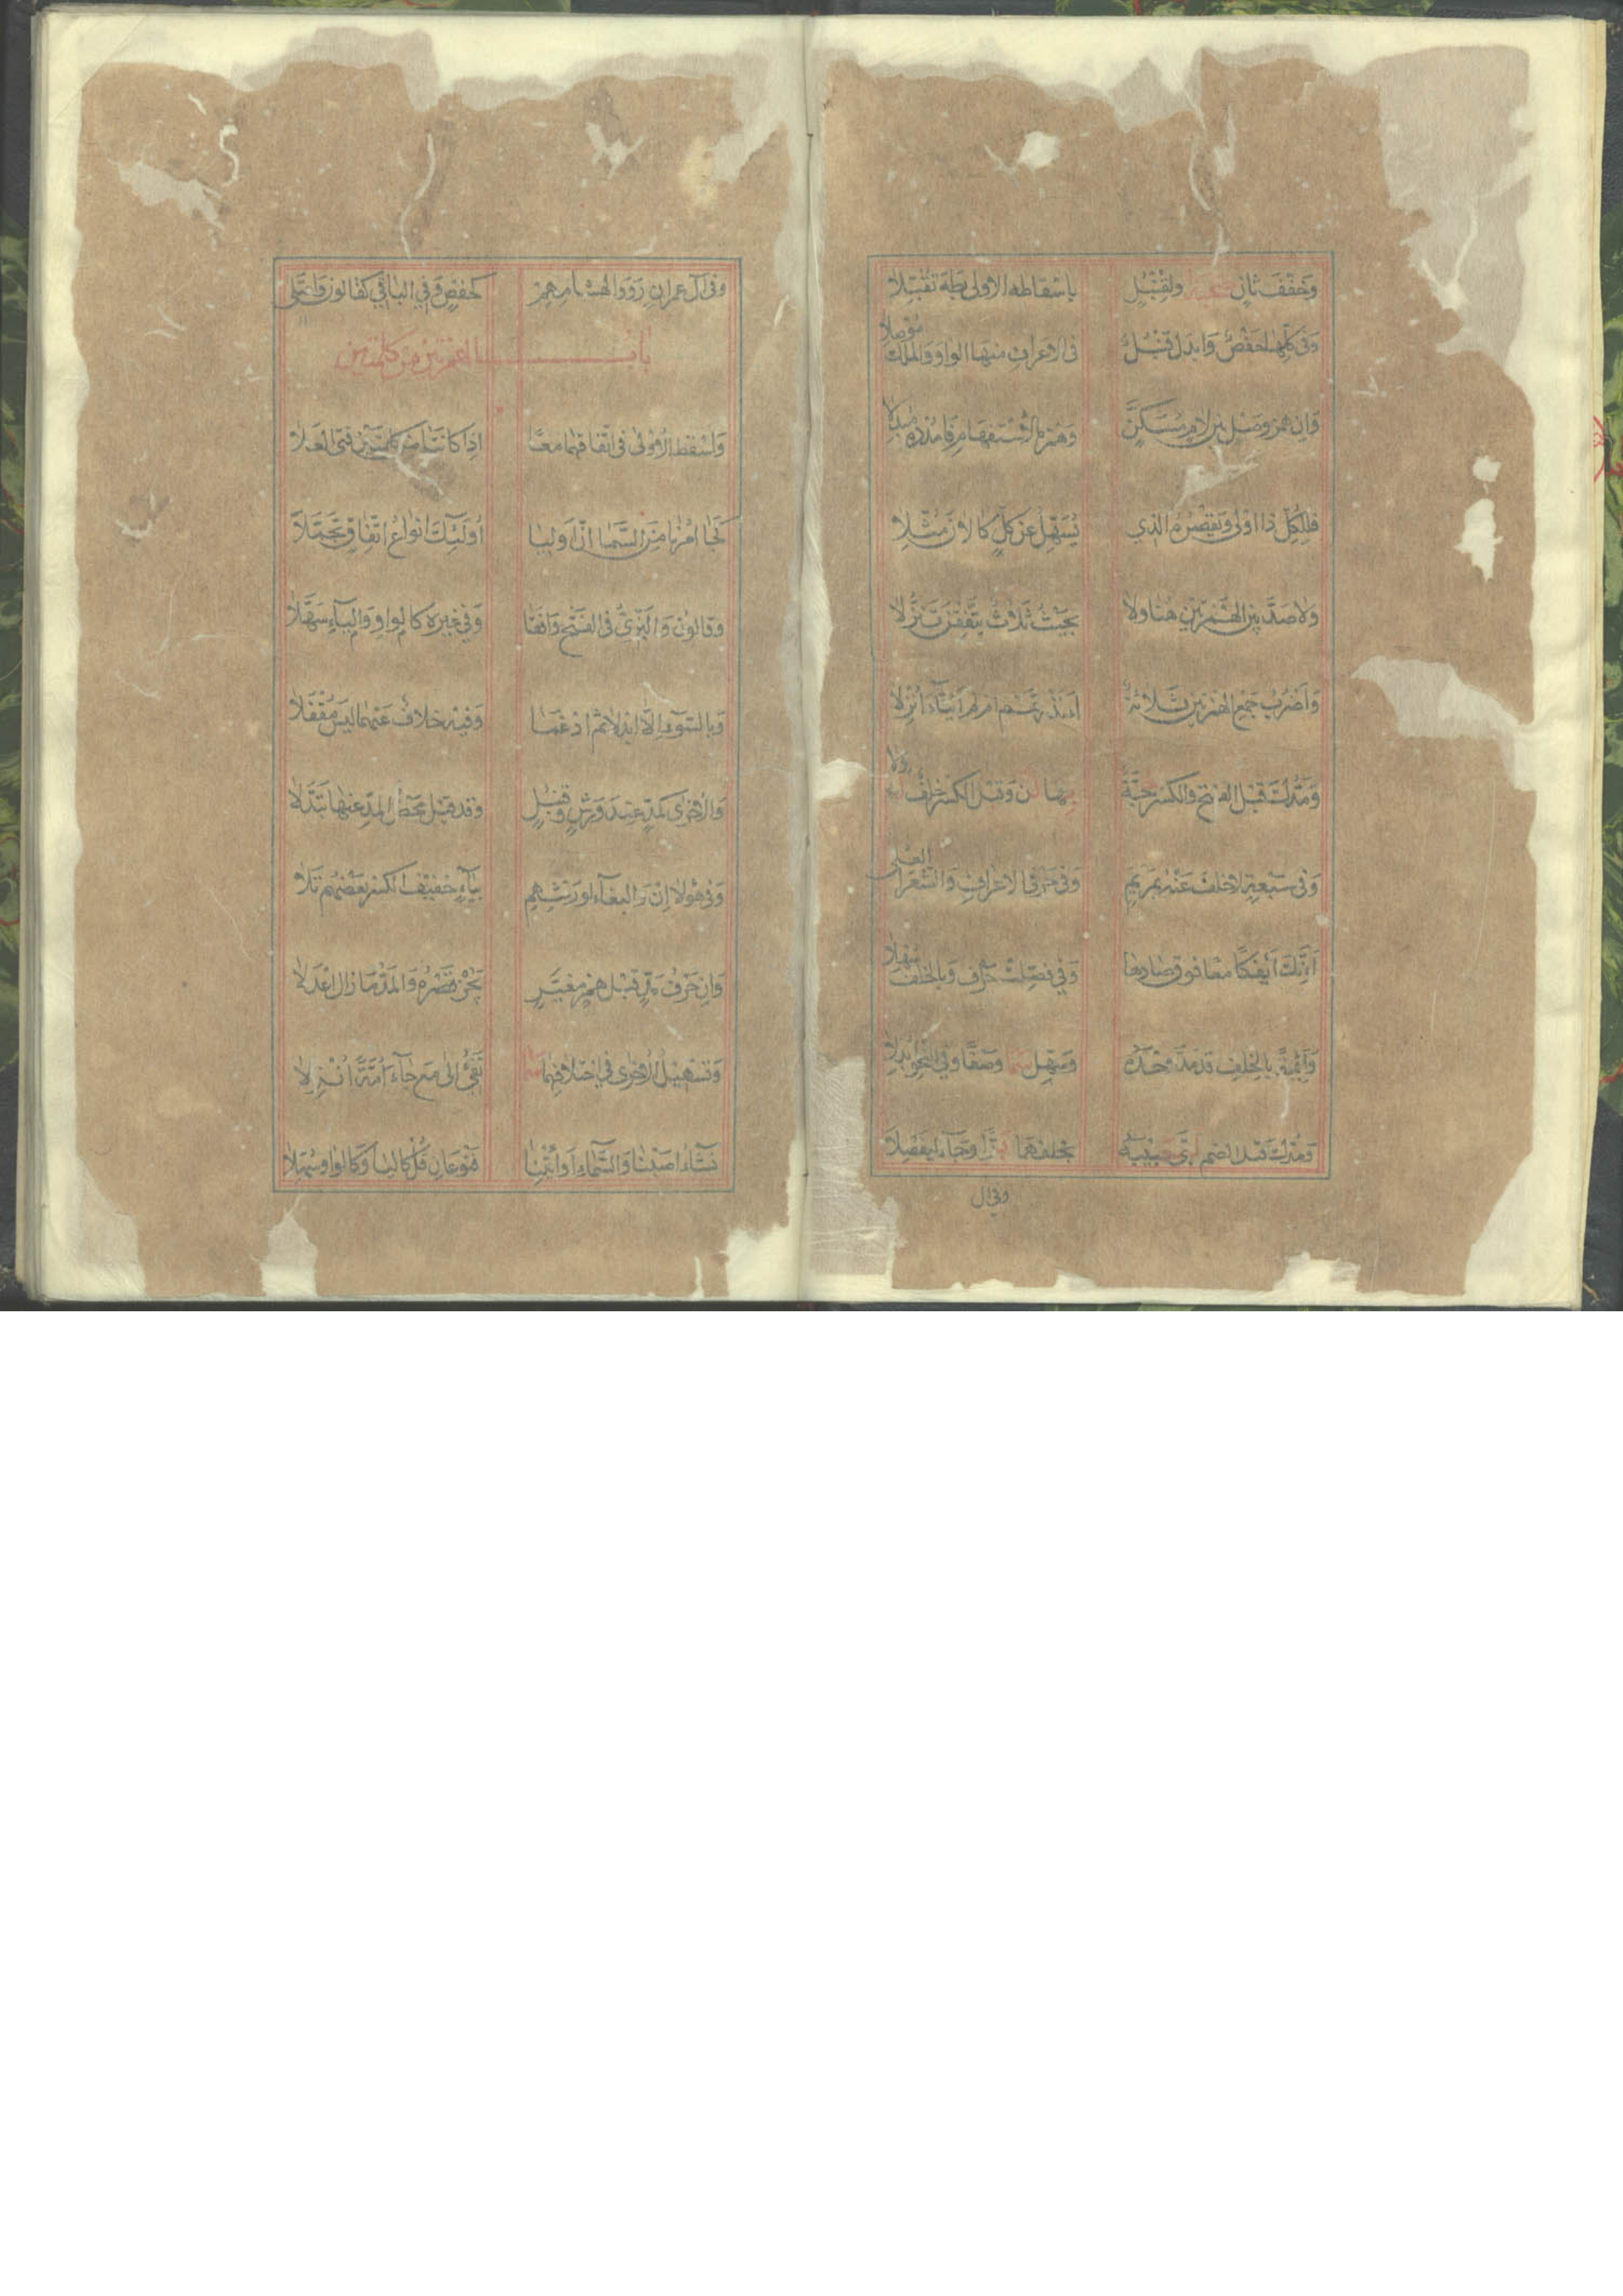 وَحَقَّقَ ثَانٍ صُحْبَةٌ وَلِقُنْبُلٍ بِإِسْقَاطِهِ الْأُولَى بِطٰهَ تُقُبِّلَا
وَفِي كُلِّهَا حَفْصٌ وَأَبْدَلَ قُنْبُلٌ فِي الْأَعْرَافِ مِنْهَا الْوَاوَ وَالْمُلْكِ مُوصِلَا
وَإِنْ هَمْزُ وَصْلٍ بَيْنَ لَامٍ مُسَكَّنٍ وَهَمْزَةِ الِاسْتِفْهَامِ فَامْدُدْهُ مُبْدِلَا
فَلِلْكُلِّ ذَا أَوْلَى وَيَقْصُرُهُ الَّذِي يُسَهِّلُ عَنْ كُلٍّ كَآلَانَ مُثِّلَا
وَلَا مَدَّ بَيْنَ الْهَمْزَتَيْنِ هُنَا وَلَا بِحَيْثُ ثَلَاثٌ يَتَّفِقْنَ تَنَزُّلَا
وَأَضْرُبُ جَمْعِ الْهَمْزَتَيْنِ ثَلَاثَةٌ ءَأَنْذَرْتَهُمْ أَمْ لَمْ أَئِنَّا أَءُنْزِلَا
وَمَدُّكَ قَبْلَ الْفَتْحِ وَالْكَسْرِ حُجَّةٌ بِهَا لُذْ وَقَبْلَ الْكَسْرِ خُلْفٌ لَهُ وَلَا
وَفِي سَبْعَةٍ لَا خُلْفَ عَنْهُ بِمَرْيَمٍ وَفِي حَرْفَيِ الْأَعْرَافِ وَالشُّعَرَا الْعُلَى
أَئِنَّكَ أَئِفْكًا مَعًا فَوْقَ صَادِهَا وَفِي فُصِّلَتْ حَرْفٌ وَبِالْخُلْفِ سُهِّلَا
وَأَئِمَّةً بِالْخُلْفِ قَدْ مَدَّ وَحْدَهُ وَسَهِّلْ سَمَا وَصْفًا وَفِي النَّحْوِ أُبْدِلَا
وَمَدُّكَ قَبْلَ الضَّمِّ لَبَّى حَبِيبُهُ بِخُلْفِهِمَا بَرًّا وَجَاءَ لِيَفْصِلَا
وفي آل
وَفِي آلِ عِمْرَانَ رَوَوْا لِهِشَامِهِمْ كَحَفْصٍ وَفِي الْبَاقِي كَقَالُونَ وَاعْتَلَى
بَابُ الْهَمْزَتَيْنِ مِنْ كَلِمَتَيْنِ
وَأَسْقَطَ الْأُولَى فِي اتِّفَاقِهِمَا مَعًا إِذَا كَانَتَا مِنْ كِلْمَتَيْنِ فَتَى الْعَلَا
كَجَا أَمْرُنَا مِنَ السَّمَا إِنَّ أَوْلِيَا أُولَئِكَ أَنْوَاعُ اتِّفَاقٍ تَجَمَّلَا
وَقَالُونُ وَالْبَزِّيُّ فِي الْفَتْحِ وَافَقَا وَفِي غَيْرِهِ كَالْوَاوِ وَالْيَاءِ سَهَّلَا
وَبِالسُّوءِ إِلَّا أَبْدَلَا ثُمَّ أَدْغَمَا وَفِيهِ خِلَافٌ عَنْهُمَا لَيْسَ مُقْفَلَا
وَالْأُخْرَى كَمَدٍّ عِنْدَ وَرْشٍ وَقُنْبُلٍ وَقَدْ قِيلَ مَحْضُ الْمَدِّ عَنْهَا تَبَدَّلَا
وَفِي هَؤُلَا إِنْ وَالْبِغَاءِ لِوَرْشِهِمْ بِيَاءٍ خَفِيفِ الْكَسْرِ بَعْضُهُمُ تَلَا
وَإِنْ حَرْفُ مَدٍّ قَبْلَ هَمْزٍ مُغَيَّرٍ يَجُزْ قَصْرُهُ وَالْمَدُّ مَا زَالَ أَعْدَلَا
وَتَسْهِيلُ الْأُخْرَى فِي اخْتِلَافِهِمَا سَمَا تَفِيءَ إِلَى مَعْ جَاءَ أُمَّةً أُنْزِلَا
نَشَاءُ أَصَبْنَا وَالسَّمَاءِ أَوِ ائْتِنَا فَنَوْعَانِ قُلْ كَالْيَا وَكَالْوَاوِ سُهِّلَا